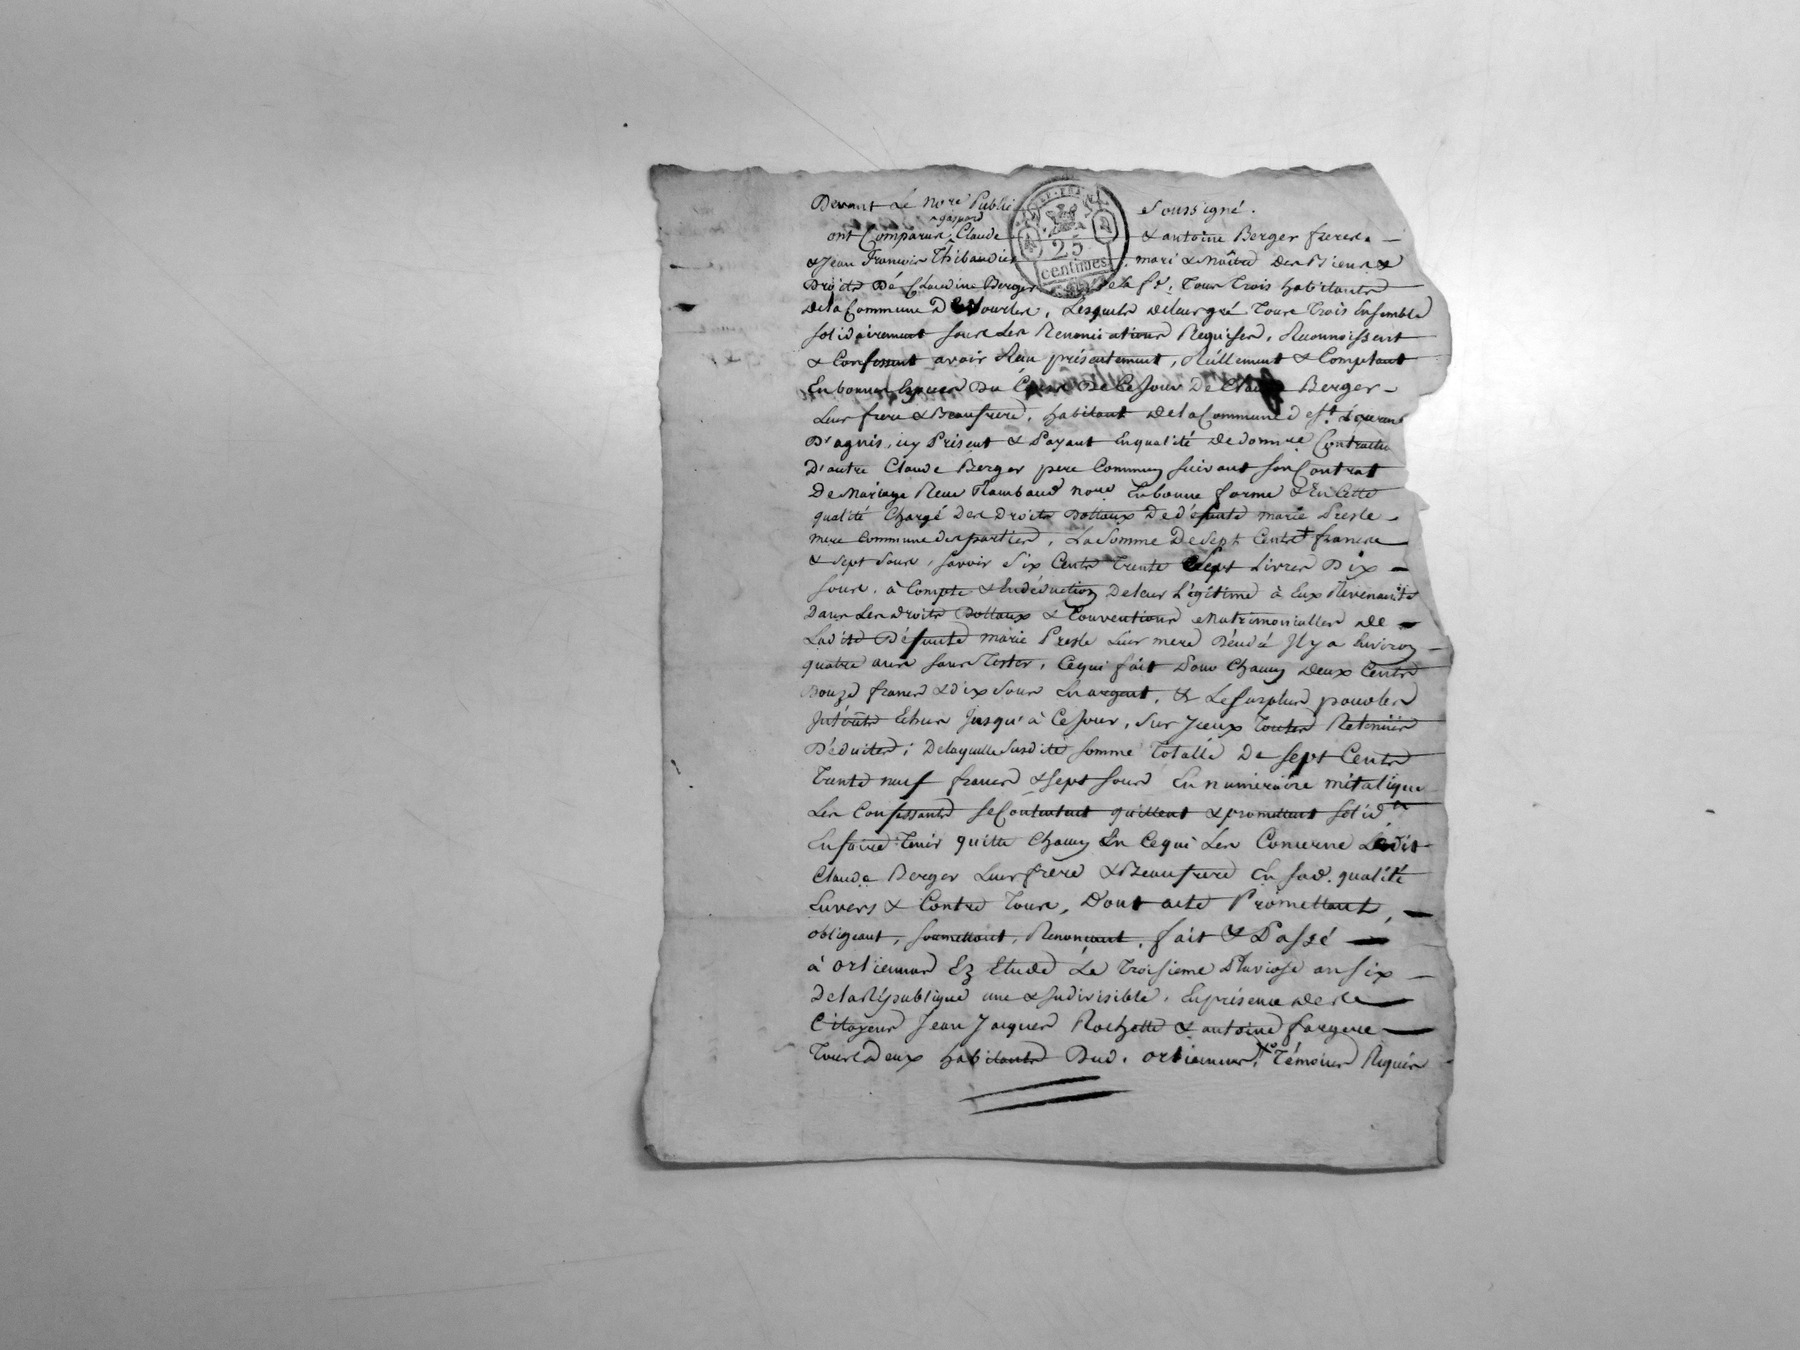 Devant Le No.re Public soussigné.
gaspard
ont Comparus Claude & antoine Berger freres
& Jean francois Thibaudier mari & Maître des Biens &
Droits De Claudine Berger de la fe. Tous Trois habitants
de la Commune D Lesquels de leur gré Tous Trois Ensemble
solidairement sous Les Renonciations Requises, Reconnoissent
& Confessent avoir Reçu présentement, Réellement & Comptant
En bonnes Especes Du Cours De Ce Jour De Claude Berger
Leur frere & Beaufrere, habitant de la Commune d
D'agnis, icy Présent & Payant En qualité de donn.re Contractuel
D'autre Claude Berger pere Commun suivant son Contrat
De Mariage Reçu Flambaud No.re En bonne forme & En Cette
qualité Chargé Des Droits Dottaux De défunte marie Presle
mere Commune des parties, La Somme De Sept Cents francs
& sept sous, savoir Six Cents Trente Sept Livres Dix
sous, à Compte & En déduction De leur Légitime à Eux Revenants
Dans Les droits Dottaux & Conventions Matrimonialles de
Ladite Défunte marie Presle Leur mere Décédé Il y a Environ
quatre ans sans Tester, Ce qui fait Pour Chacun deux Cents
Douze francs & dix sous En argent, & Le surplus pour Les
Intérêts Echus Jusqu'à Ce Jour, Sur Iceux Toutes Retenües
Déduites; De laquelle Susdite somme Totalle De sept Cents
Trente neuf francs & sept sous En numéraire métalique
Les Confessants se Contentent quittent & promettent solid.nt
En faire Tenir quitte Chacun En Ce qui Les Concerne Ledit
Claude Berger Leur frere & Beaufrere En sad. qualité
Envers & Contre Tous, Dont acte Promettant,
obligeant, soumettant, Renoncant. fait & Passé
à orliennas Ez Etude Le Troisieme Pluviose an six
De la République une & Indivisible, En présence des
Citoyens Jean Jacques Rochette & antoine fargere
Tous Deux habitants Dud. orliennas, Témoins Requis
25
centimes